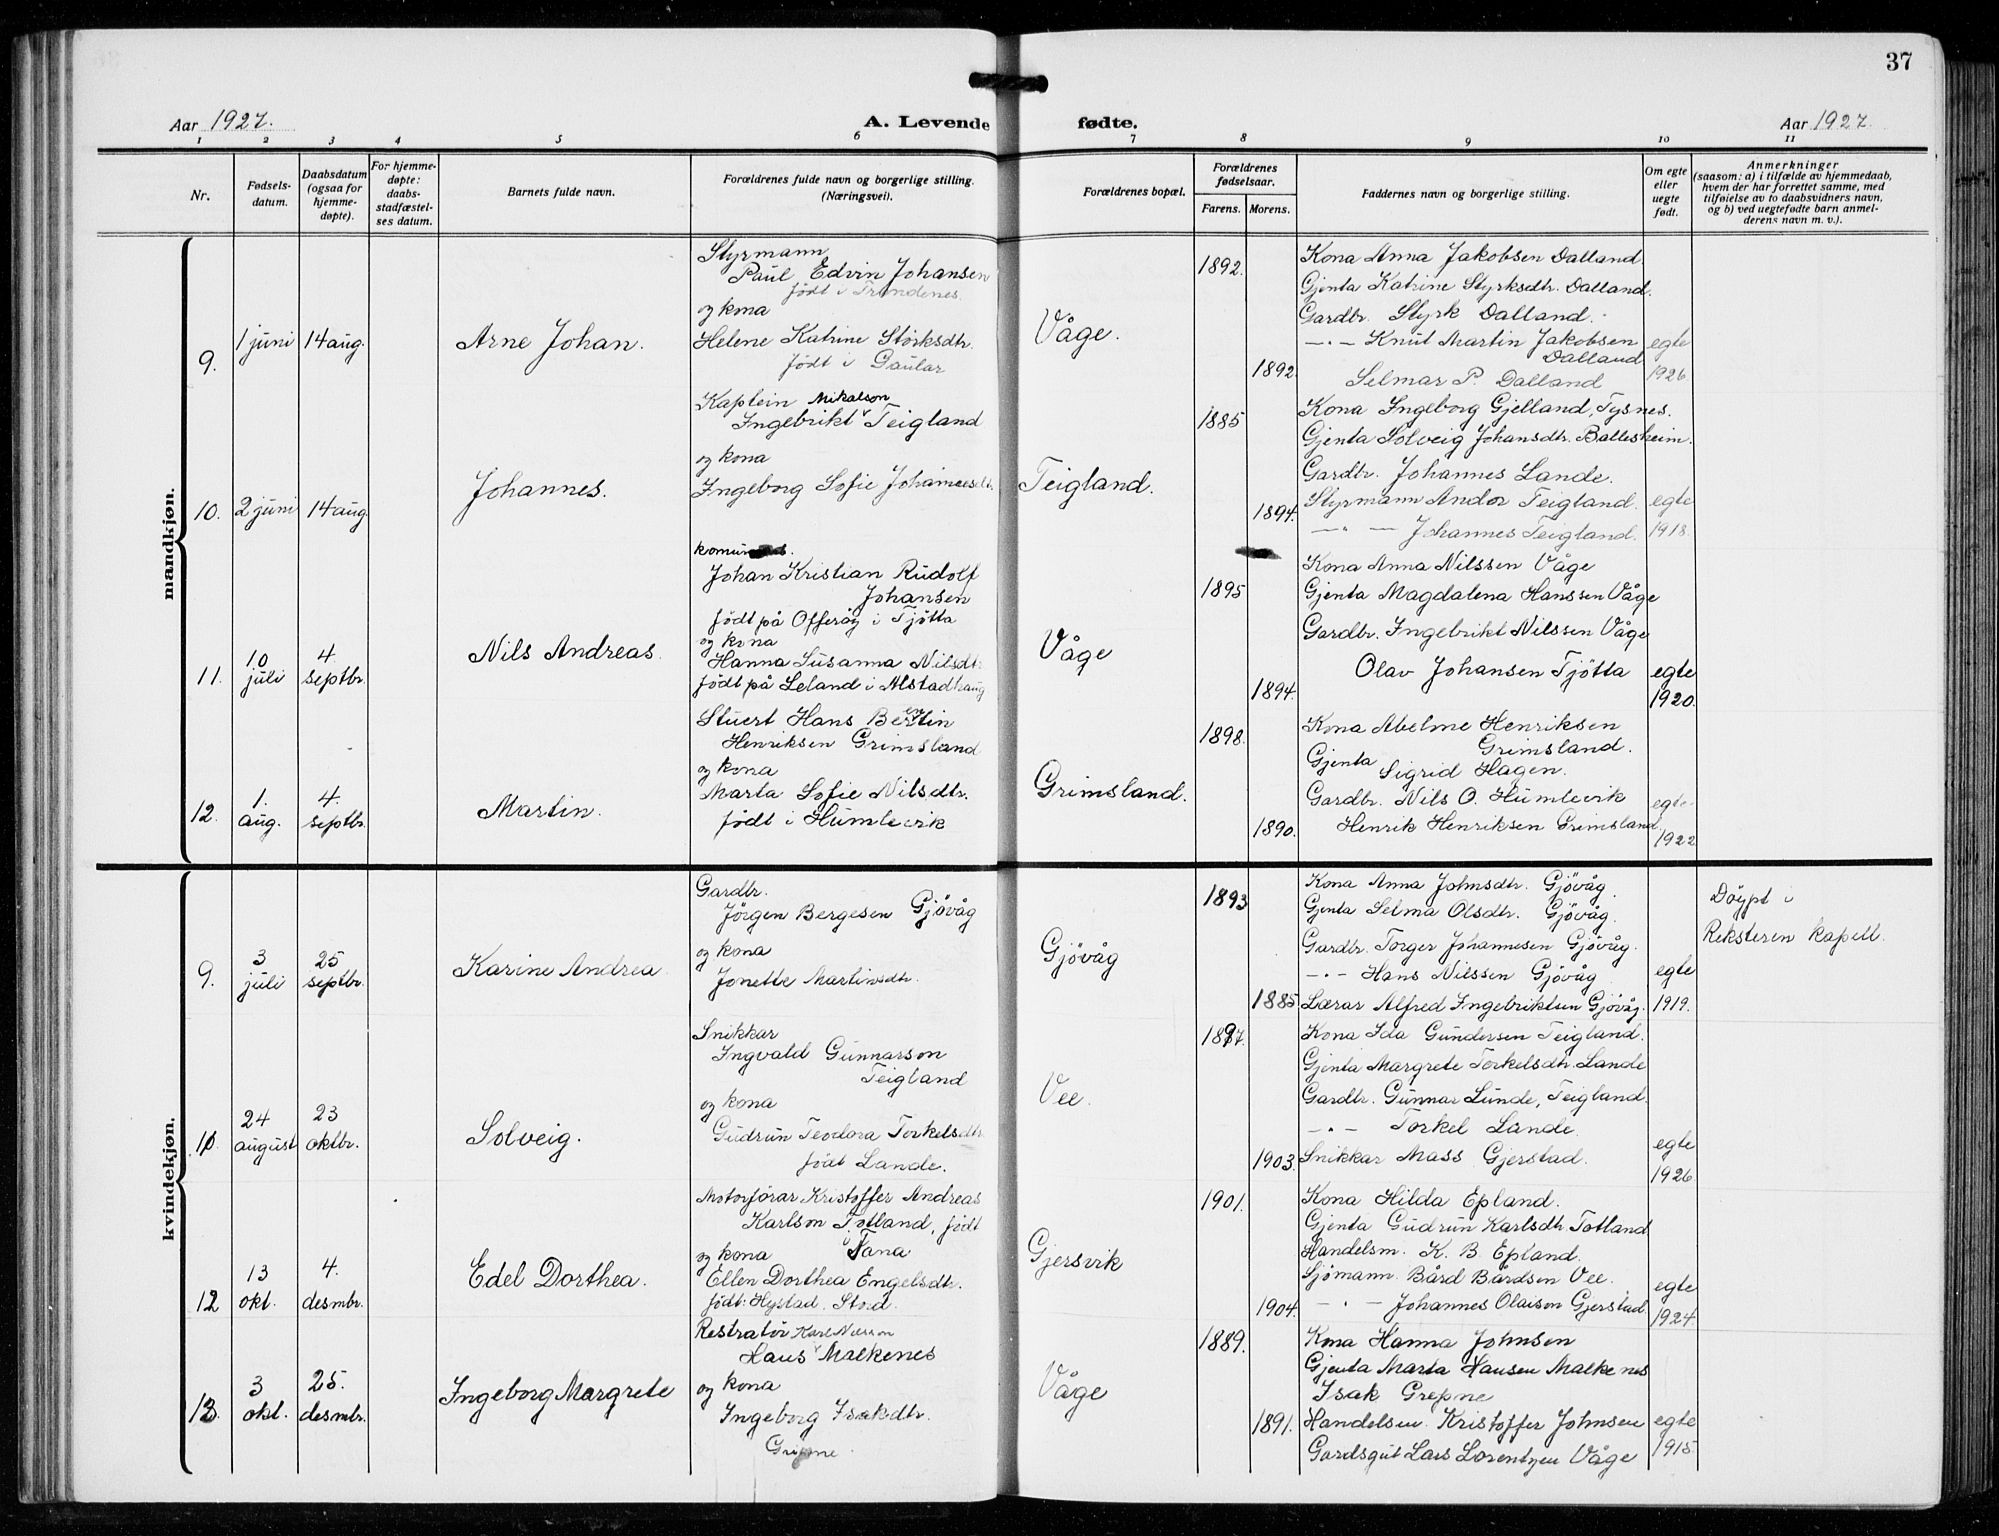 37
Aar 1927.
A. Levende fødte.
Aar 1927
1 2 3 4 5 6 7 8 9 10 11
Nr.
Fødselsdatum.
Daabsdatum (ogsaa for hjemmedøpte).
For hjemmedøpte: daabsstadfæstelses datum.
Barnets fulde navn.
Forældrenes fulde navn og borgerlige stilling. (Næringsvei).
Forældrenes bopæl.
Forældrenes fødselsaar.
Farens. Morens.
Faddernes navn og borgerlige stilling.
Om egte eller uegte født.
Anmerkninger
(saasom: a) i tilfælde av hjemmedaab, hvem der har forrettet samme, med tilføielse av to daabsvidners navn, og b) ved uegtefødte barn anmelderens navn m. v.).
mandkjøn.
9.
1 juni
14 aug.
Arne Johan.
Styrmann
Paul Edvin Johansen
født i Trondenes.
og kona
Helene Katrine Störksdtr.
født i Gaular
Våge.
1892.
1892.
Kona Anna Jakobsen Dalland
Gjenta Katrine Styrksdtr. Dalland.
Gardbr. Styrk Dalland.
—"— Knut Martin Jakobsen
Dalland
Selmar P. Dalland
egte
1926.
10.
2 juni
14 aug.
Johannes.
Kaptein Mikalson
Ingebrikt Teigland
og kona
Ingeborg Sofie Johannesdtr.
Teigland.
1885
1894.
Kona Ingeborg Gjelland, Tysnes.
Gjenta Solveig Johansdtr. Ballesheim.
Gardbr. Johannes Lande.
Styrmann Andor Teigland.
—"— Johannes Teigland.
egte
1918.
11.
10 juli
4. septbr.
Nils Andreas.
Johan Kristian Rudolf
Johansen
født på Offeröy i Tjötta
og kona
Hanna Susanna Nilsdtr.
født på Leland i Alstadhaug
Våge
1895
1894.
Kona Anna Nilssen Våge
Gjenta Magdalena Hanssen Våge
Gardbr. Ingebrikt Nilssen Våge
Olav Johansen Tjötta
egte
1920.
12.
1. aug.
4. septbr.
Martin.
Stuert Hans Bertin
Henriksen Grimsland
og kona
Marta Sofie Nilsdtr.
født i Humlevik
Grimsland.
1898.
1890.
Kona Abelme Henriksen
Grimsland.
Gjenta
Sigrid Hagen.
Gardbr. Nils O. Humlevik
Henrik Henriksen Grimsland.
egte
1922
kvindekjøn.
9.
3 juli
25 septbr.
Karine Andrea
Gardbr.
Jörgen Bergesen Gjövåg
og kona
Jonette Martinsdtr.
Gjövåg
1893
1885
Kona Anna Johnsdtr. Gjövåg.
Gjenta Selma Olsdtr. Gjövåg.
Gardbr. Torger Johannesen Gjövåg.
—"— Hans Nilssen Gjövåg
Lærar Alfred Ingebriktsen Gjövåg.
egte
1919.
Döypt i
Reksteren kapell.
10
24 august
23 oktbr.
Solveig.
Snikkar
Ingvald Gunnarson
Teigland
og kona
Gudrun Teodora Torkelsdtr.
født Lande.
Vee.
1897.
1903.
Kona Ida Gundersen Teigland.
Gjenta Margrete Torkelsdtr. Lande
Gardbr. Gunnar Lunde, Teigland.
—"— Torkel Lande.
Snikkar Mass Gjerstad.
egte
1926
12
13 okt.
4. desmbr.
Edel Dorthea.
Motorförar Kristoffer Andreas
Karlson Totland, født
i Tana
og kona
Ellen Dorthea Engelsdtr.
født: Hystad. Stord.
Gjersvik
1901.
1904.
Kona Hilda Epland.
Gjenta Gudrun Karlsdtr. Totland
Handelsm. K. B. Epland.
Sjömann Bård Bårdsen Vee.
—"— Johannes Olaison Gjerstad
egte
1924.
13
3 okt.
25. desmbr.
Ingeborg Margrete
Restratör Karl Nilsson
Hans Malkenes
og kona
Ingeborg Isakdtr.
Grepne.
Våge
1889.
1891.
Kona Hanna Johnsen
Gjenta Marta Hansen Malkenes
Isak Grepne
Handelsm. Kristoffer Johnsen
Gardsgut Lars Lorentzen Våge
egte
1915.